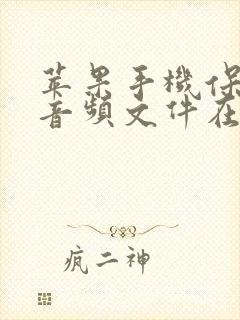 苹果手機保
音頻文件在
疯二神